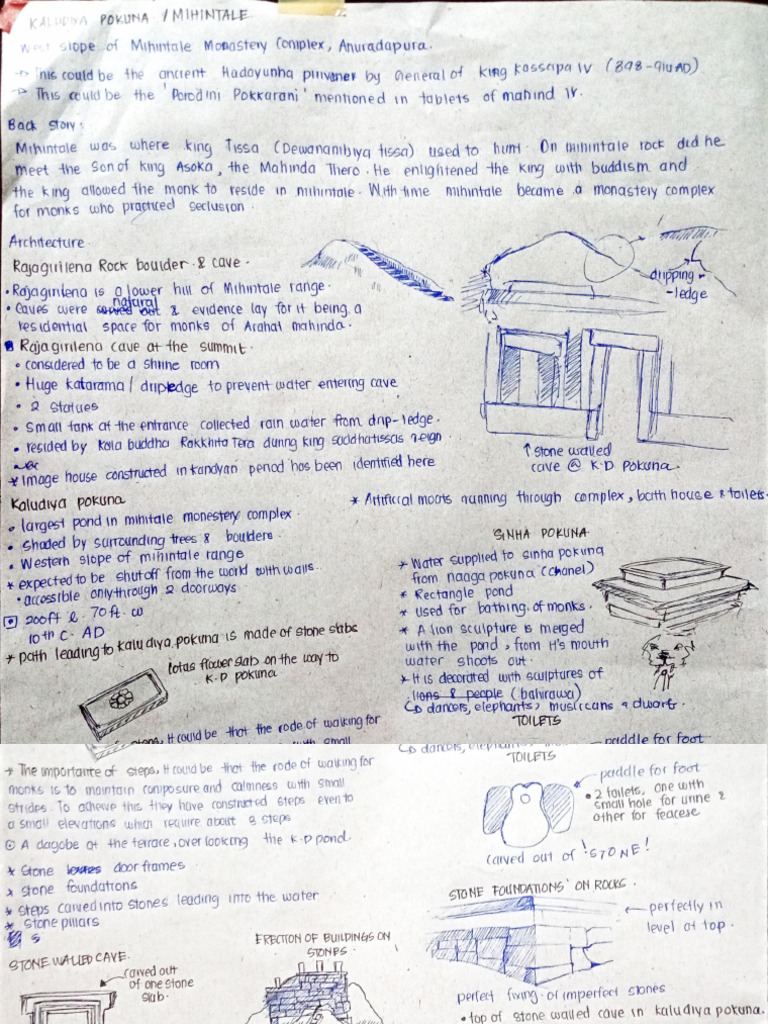 KALUDIYA POKUNA / MIHINTALE
West slope of Mihintale Monastery Complex, Anuradapura.
→ This could be the ancient Hadayunha pirivener by General of King Kassapa IV (898-914AD)
→ This could be the 'Porodini Pokkarani' mentioned in tablets of mahind IV.
Back story:
Mihintale was where king Tissa (Dewananibiya tissa) used to hunt. On mihintale rock did he
meet the Son of king Asoka, the Mahinda Thero. He enlightened the king with buddism and
the king allowed the monk to reside in mihintale. With time mihintale became a monastery complex
for monks who practiced seclusion.
Architecture.
Rajagirilena Rock boulder & cave.
• Rajagirilena is a lower hill of Mihintale range.
• Caves were natural & evidence lay for it being a
residential space for monks of Arahat mahinda.
Rajagirilena cave at the summit.
• considered to be a shrine room
• Huge katarama / dripledge to prevent water entering cave
• 2 statues
• Small tank at the entrance collected rain water from drip-ledge.
• resided by Kola buddha Rakkhita Tera during king saddhatissas reign
* Image house constructed in kandyan period has been identified here
dripping-
ledge
↑ stone walled
cave @ K.D Pokuna.
Kaludiya pokuna
• largest pond in mihitale monestery complex.
• Shaded by surrounding trees & boulders.
• Western slope of mihintale range
* expected to be shutoff from the world with walls.
• accessible only through 2 doorways.
200ft l. 70ft. w
10th C. AD
* path leading to kaludiya pokuna is made of stone slabs
lotus flower slab on the way to
K.D pokuna
* Artificial moats running through complex, bath house & toilets.
SINHA POKUNA
* Water supplied to sinha pokuna
from naaga pokuna (chanel)
* Rectangle pond
* used for bathing of monks.
* A lion sculpture is merged
with the pond, from it's mouth
water shoots out.
* It is decorated with sculptures of
lions & people (bahirawa)
↳ dancers, elephants, musicians & dwarfs.
TOILETS
it could be that the rode of walking for
↳ dancers,
paddle for foot
TOILETS
* The importante of steps, it could be that the rode of walking for
monks is to maintain composure and calmness with small
strides. To achieve this they have constructed steps even to
a small elevations which require about 2 steps
⊙ A dagobe at the terrace, overlooking the K.D pond.
* Stone door frames
* stone foundations
* steps carved into stones leading into the water
* Stone pillars
s
paddle for foot
• 2 toilets, one with
small hole for urine &
other for feacese
carved out of !STONE!
STONE FOUNDATIONS ON ROCKS.
← perfectly in
level at top.
perfect fixing of imperfect stones
• top of stone walled cave in kaludiya pokuna.
STONE WALLED CAVE.
carved out
of one stone
slab.
ERECTION OF BUILDINGS ON
STONES